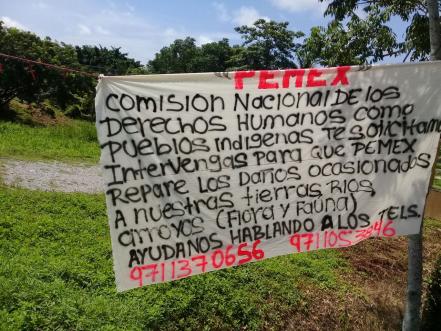 PEMEX
COMISION NACIONAL DE LOS
DERECHOS HUMANOS COMO
PUEBLOS INDIGENAS TE SOLICITAMOS
INTERVENGAS PARA QUE PEMEX
REPARE LOS DAÑOS OCASIONADOS
A NUESTRAS TIERRAS RIOS
ARROYOS (FLORA Y FAUNA)
AYUDANOS HABLANDO A LOS TELS.
9711370656 9711053846